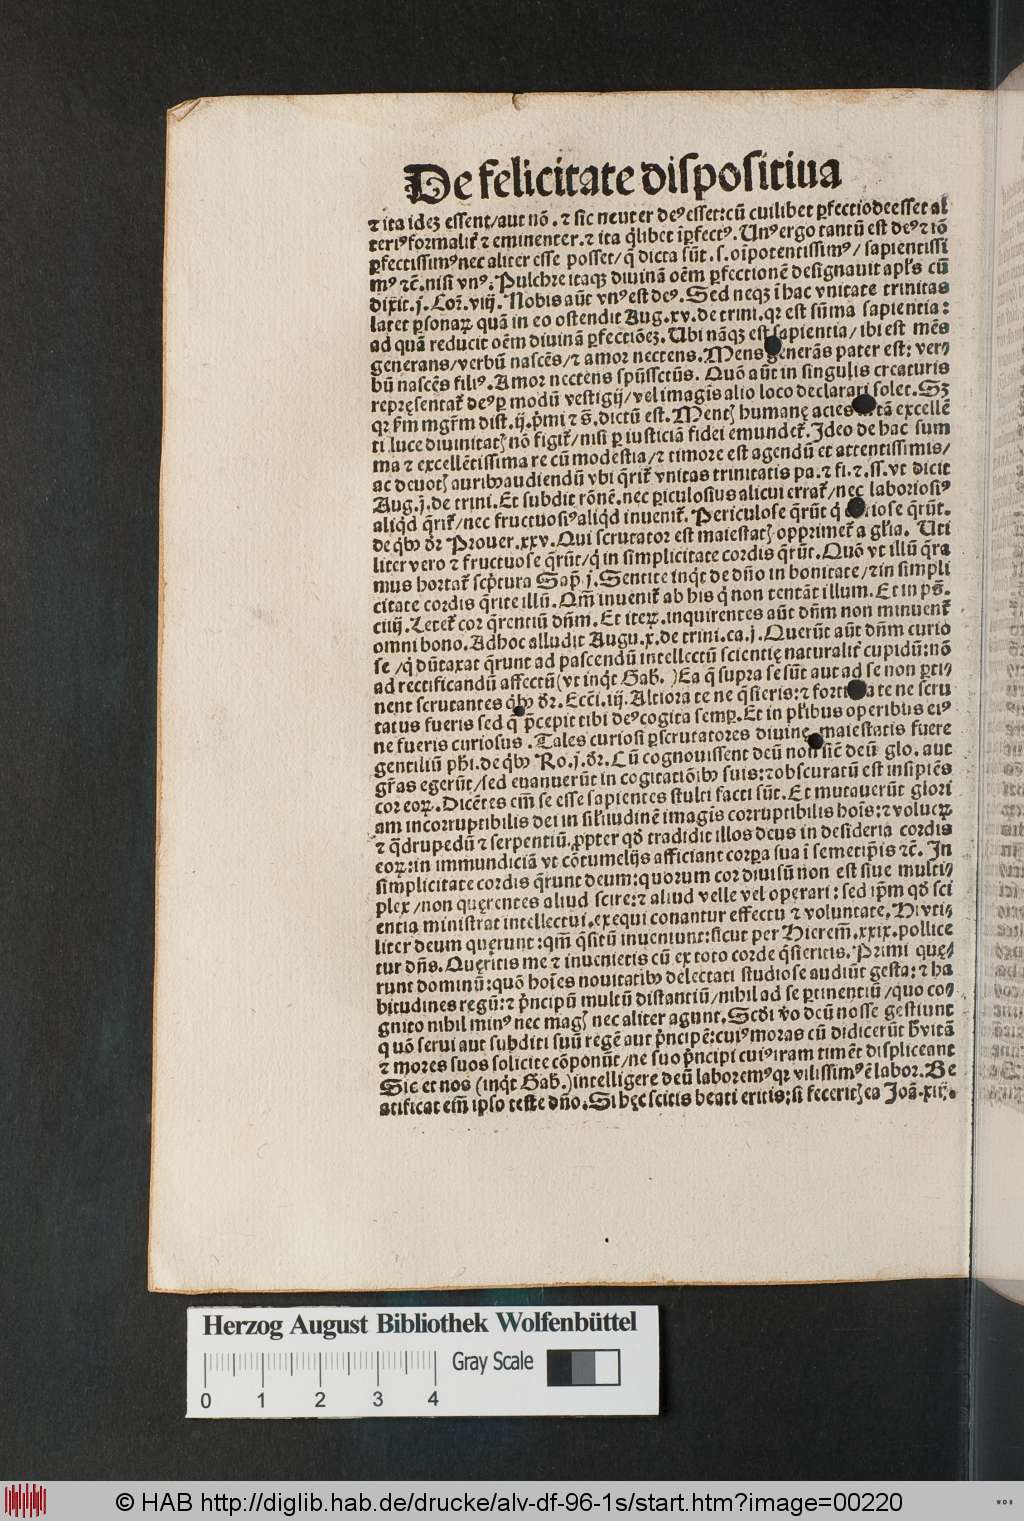 De felicitate dispositiua
⁊ ita ideꝫ essent/aut nō. ⁊ sic neuter deꝰ esset: cū cuilibet ꝑfectio deesset al
teriꝰ formalit̃ ⁊ eminenter. ⁊ ita q̃libet īꝑfectꝰ. Unꝰ ergo tantū est deꝰ ⁊ iō
ꝑfectissimꝰ nec aliter esse posset/ q̃ dicta sūt. s. oīpotentissimꝰ/ sapientissi
mꝰ ⁊c̃. nisi vnꝰ. Pulchre itaqꝫ diuinā oēm ꝑfectionē designauit apl̃s cū
dixit. j. Coꝛ. viij. Nobis aūt vnꝰ est deꝰ. Sed neqꝫ ī hac vnitate trinitas
latet ꝑsonaꝝ quā in eo ostendit Aug. xv. de trini. qꝛ est sūma sapientia:
ad quā reducit oēm diuinā ꝑfectiōeꝫ. Ubi nāqꝫ est sapientia/ ibi est mēs
generans/verbū nascēs/⁊ amor nectens. Mens generās pater est: ver⸗
bū nascēs filiꝰ. Amor nectens spūssctūs. Quō aūt in singulis creaturis
repręsentat̃ deꝰ ꝑ modū vestigij/ vel imagīs alio loco declarari solet. Sꝫ
qꝛ ẜm mgr̃m dist. ij. p̃mi ⁊ s̄. dictū est. Mentꝭ humanę acies tā excellē
ti luce diuinitatꝭ nō figit̃/ nisi ꝑ iusticiā fidei emundet̃. Ideo de hac sum
ma ⁊ excellētissima re cū modestia/⁊ timore est agendū et attentissimis/
ac deuotꝭ auribꝰ audiendū vbi q̃rit̃ vnitas trinitatis pa. ⁊ fi. ⁊. ss. vt dicit
Aug. j. de trini. Et subdit rōnē. nec ꝑiculosius alicui errat̃/nec laboriosiꝰ
aliqd̃ q̃rit̃/nec fructuosiꝰ aliqd̃ inuenit̃. Periculose q̃rūt q̃ riose q̃rūt.
de qbꝰ dꝛ̃ Prouer. xxv. Qui scrutator est maiestatꝭ opprimet̃ a gl̃ia. Uti
liter vero ⁊ fructuose q̃rūt/q̃ in simplicitate cordis q̃rūt. Quō vt illū q̃ra
mus hortat̃ scp̃tura Sap̃. j. Sentite inqt̃ de dño in bonitate/⁊ in simpli
citate cordis q̃rite illū. Qm̄ inuenit̃ ab his q̃ non tentāt illum. Et in ps̄.
ciiij. Letet̃ cor q̃rentiū dñm. Et iteꝝ. inquirentes aūt dñm non minuent̃
omni bono. Ad hoc alludit Augu. x. de trini. ca. j. Querūt aūt dñm curio
se /q̃ dūtaxat q̃runt ad pascendū intellectū scientię naturalit̃ cupidū: nō
ad rectificandū affectū (vt inqt̃ Gab. ) Ea q̃ supra se sūt aut ad se non ꝑti⸗
nent scrutantes qbꝰ dꝛ̃. Ecc̄i. iij. Altiora te ne q̃sieris: ⁊ forti a te ne scru
tatus fueris sed q̃ p̃cepit tibi deꝰ cogita semꝑ. Et in pl̃ibus operibus eiꝰ
ne fueris curiosus. Tales curiosi ꝑscrutatores diuinę maiestatis fuere
gentiliū ph̃i. de qbꝰ Ro. j. dꝛ̃. Cū cognouissent deū non sic̄ deū glo. aut
gr̃as egerūt/sed euanuerūt in cogitatiōibꝰ suis: ⁊ obscuratū est insipiēs
cor eoꝝ. Dicētes em̄ se esse sapientes stulti facti sūt. Et mutauerūt glori
am incorruptibilis dei in sil̃itudinē imagīs corruptibilis hoīs: ⁊ volucꝝ
⁊ q̃drupedū ⁊ serpentiū. ꝓpter qd̃ tradidit illos deus in desideria cordis
eoꝝ: in immundiciā vt cōtumelijs afficiant corꝑa sua ī semetip̄is ⁊c̃. In
simplicitate cordis q̃runt deum: quorum cor diuisū non est siue multi⸗
plex/non quęrentes aliud scire: ⁊ aliud velle vel operari: sed ip̄m qd̃ sci
entia ministrat intellectui. exequi conantur effectu ⁊ voluntate. Hi vti⸗
liter deum quęrunt: qm̄ q̃sitū inueniunt: sicut per Hierem̄. xxix. pollice
tur dñs. Quęritis me ⁊ inuenietis cū ex toto corde q̃sieritis. Primi quę⸗
runt dominū: quō hoīes nouitatibꝰ delectati studiose audiūt gesta: ⁊ ha
bitudines regū: ⁊ p̃ncipū multū distantiū/nihil ad se ꝑtinentiū/quo co⸗
gnito nihil minꝰ nec magꝭ nec aliter agunt. Scd̃i v̄o deū nosse gestiunt
q̃uō serui aut subditi suū regē aut p̃ncipē: cuiꝰ moras cū didicerūt b̃uitā
⁊ mores suos solicite cōponūt/ne suo p̃ncipi cuiꝰ iram timēt displiceant
Sic et nos (inqt̃ Gab.) intelligere deū laboremꝰ qꝛ vilissimꝰ ē labor. Be
atificat em̄ ipso teste dño. Si hęc scitis beati eritis: si feceritꝭ ea Joā. xiij.
Herzog August Bibliothek Wolfenbüttel
0 1 2 3 4 Gray Scale
© HAB http://diglib.hab.de/drucke/alv-df-96-1s/start.htm?image=00220